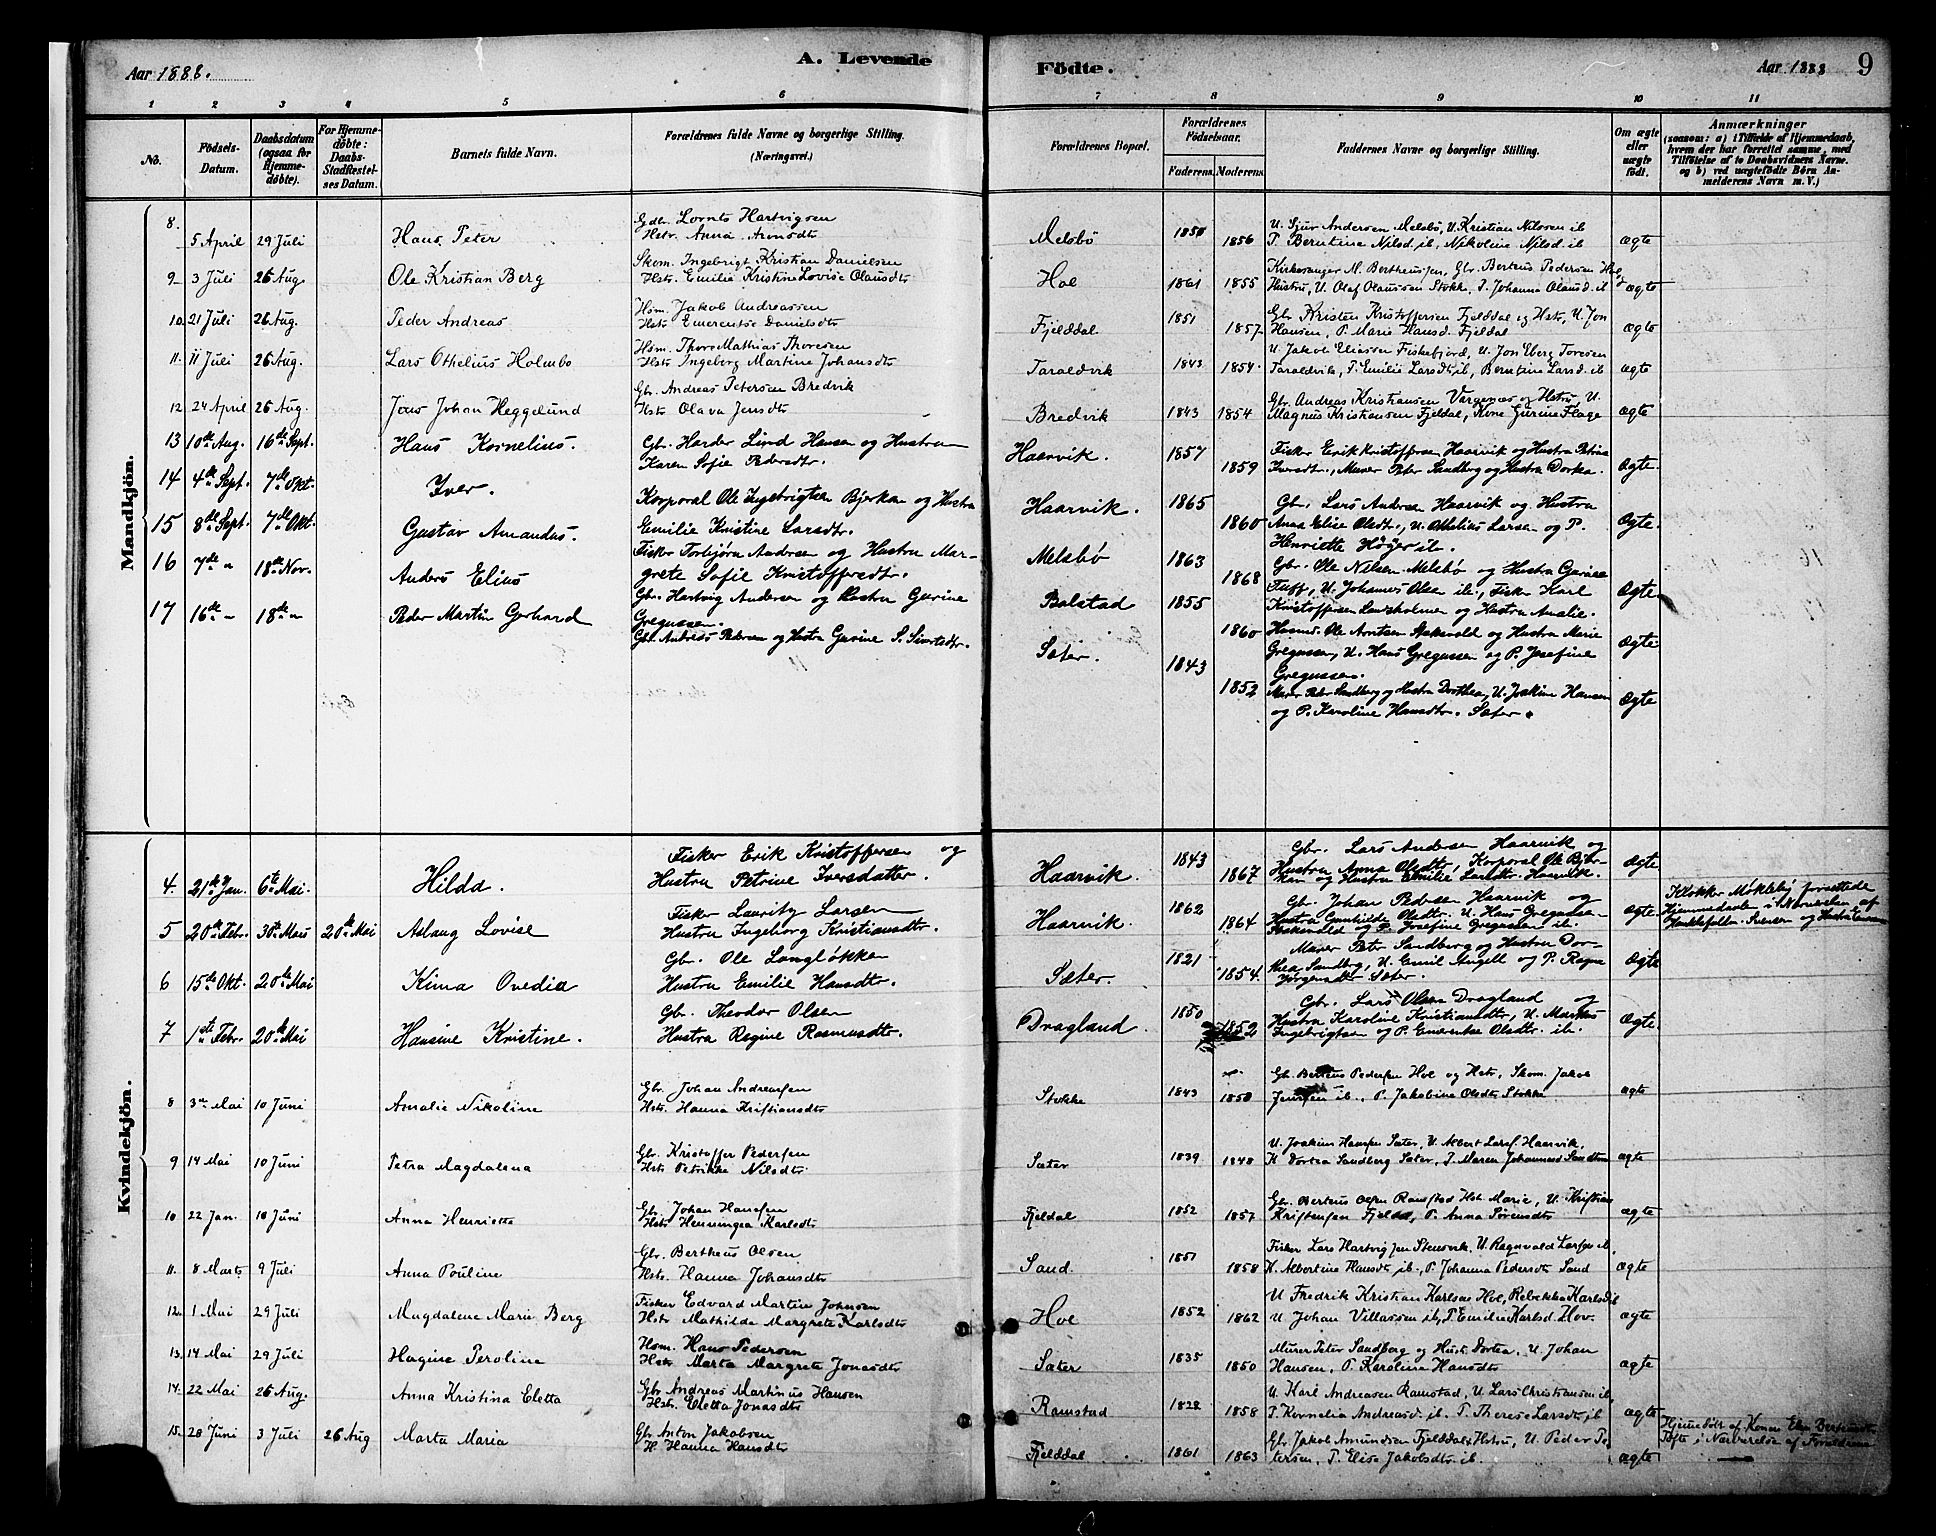 Aar 1888.
A. Levende
Födte.
Aar 1888
9
1 2 3 4 5 6 7 8 9 10 11
No.
Födsels-Datum.
Daabsdatum (ogsaa for Hjemme-døbte).
For Hjemme-døbte: Daabs-Stadfæstel-ses Datum.
Barnets fulde Navn.
Forældrenes fulde Navne og borgerlige Stilling.
(Næringsvei.)
Forældrenes Bopæl.
Forældrenes Födselsaar.
Faderens. Moderens.
Faddernes Navne og borgerlige Stilling.
Om ægte eller uægte født.
Anmærkninger
(saasom: a) i Tilfælde af Hjemmedaab, hvem der har forrettet samme, med Tilföielse af to Daabsvidners Navne. og b) ved uægtefödte Börn Anmelderens Navn m. V.)
Mandkjön.
8. 5 April 29 Juli Hans Peter Gdbr. Lornts Hartvigsen
Hstr. Anna Arntsdtr Melsbö 1850 1856 U. Sjur Andersen Melsbö, U. Kristian Nilssen ib
P. Berntine Nilsd. ib, Nikoline Nilsd. ib ægte
9 3 Juli 26 Aug Ole Kristian Berg Skom. Ingebrigt Kristian Danielsen
Hstr. Emilie Kristine Lovise Olausdtr Hol 1861 1855 Kirkesanger M. Bertheussen, Gbr. Berteus Pedersen Hol og
Hustru, U. Olaf Olaussen Stokke, P. Johanna Olausd. ib ægte
10. 21 Juli 26 Aug. Peder Andreas Hsm. Jakob Andreassen
Hstr Emerentse Danielsdtr Fjelddal 1851 1857 Gbr Kristen Kristoffersen Fjelddal og Hstr, U. Jon
Hansen, P. Marie Hansd. Fjeldal ægte
11. 11 Juli 26 Aug. Lars Othelius Holmbo Hsm. Thore Mathias Thoresen
Hstr Ingeborg Martine Johansdtr Taraldvik 1843 1854. U. Jakob Eliassen Fiskefjord, U. Jon Eberg Toresen
Taraldvik, P. Emilie Larsdtr ib, Berntine Larsd. ib ægte
12 24 April 26 Aug. Jens Johan Heggelund Gbr. Andreas Petersen Bredvik
Hstr Olava Jensdtr Bredvik 1843 1854 Gbr Andreas Kristiansen og Hstru U.
Magnus Kristiansen Fjeldal, Kone Gurine Flage ægte
13 10de Aug. 16de Sept. Hans Kornelius. Gbr. Harder Lind Hansen og Hustru
Karen Sofie Pedersdtr. Haarvik. 1857 1859 Fisker Erik Kristoffersen Haarvik og Hustru Petrine
Iversdtr., Murer Peter Sandberg og Hustru Dorthea. Ægte.
14 4de Sept. 7de Okt. Iver. Korporal Ole Ingebrigtsen Bjerkan og Hustru
Emilie Kristine Larsdtr. Haarvik. 1865 1860 Gbr. Lars Andersen Haarvik og Hustru
Anna Elise Olsdtr., U. Othelius Larsen og P.
Henriette Höyer ib. Ægte.
15 8de Sept. 7de Okt. Gustav Amandus. Fisker Torbjørn Andersen og Hustru Mar-
grete Sofie Kristoffersdtr. Melsbö 1863 1868 Gbr. Ole Nilsen Melsbö og Hustru Gurine
Tuff, U. Johannes Olsen ib, Fisker Karl
Kristoffersen og Hustru Amalie. Ægte
16 7de " 18de Nov. Anders Elius Gbr. Hartvig Andersen og Hustru Gurine
Gregussen. Balstad 1855 1860 Husmd. Ole Arntsen og Hustru Marie
Gregussen, U. Hans Gregussen og P. Josefine
Gregussen. Ægte
17 16de " 18de " Peder Martin Gerhard Gbr. Andreas Pedersen og Hustru Gurine S. Sivertsdtr. Sæter. 1843 1852 Murer Peter Sandberg og Hustru Dorthea, U. Joakim Hansen
og P. Karoline Hansdtr. Sæter. Ægte
Kvindekjön.
4. 21de Jan. 6te Mai. Hilda. Fisker Erik Kristoffersen og
Hustru Petrine Iversdatter. Haarvik. 1843 1867 Gbr. Lars Andersen Haarvik og
Hustru Anna Olsdtr, Korporal Ole Bjer-
kan og Hustru Emilie Larsdtr. Haarvik. Ægte
5 20de Febr. 30te Mars 20de Mai Aslaug Lovise Fisker Lauritz Larsen
Hustru Ingeborg Kristiansdtr. Haarvik. 1862 1864 Gbr. Johan Pedersen Haarvik og
Hustru Gunhilde Olsdtr. U. Hans Gregussen
og P. Josefine Gregussen ib. Ægte. Klokker Mökleby forrettede
Hjemmedaab i Nærværelse af
og Hustru
6 15de Okt. 20de Mai Kima Ovedia Gbr. Ole Langløkken
Hustru Emilie Hansdtr. Sæter. 1821 1854. Murer Petr Sandberg og Hustru Dor-
thea Sandberg, U. Emil Angell og P. Ragna
Jörgensdtr Sæter. Ægte
7 1ste Febr. 20de Mai Hansine Kristine. Gbr. Theodor Olsen
Hustru Regine Rasmusdtr. Dragland. 1850 1852 Gbr. Lars Olsen Dragland og
Hustru Karoline Kristiansdtr, U. Markus
Ingebrigtsen og P. Emerentse Olsdtr. ib. Ægte.
8 3die Mai 10 Juni Amalie Nikoline Gbr. Johan Andreassen
Hstr. Hanna Kristiansdtr Stokke 1843 1850 Gb. Berteus Pedersen Hol og Hstr, Skom. Jakob
Jenssen ib., P. Jakobine Olsdtr Stokke ægte
9 14 Mai 10 Juni Petra Magdalena Gbr Kristoffer Pedersen
Hstr Petrikke Nilsdtr Sæter 1839 1848 U. Joakim Hansen Sæter, U. Albert Larss. Haarvik,
K Dortea Sandberg Sæter, P. Maren Johannesd ægte
10 22 Jan. 10 Juni Anna Henriette Gbr. Johan Hansen
Hstr. Henningea Karlsdtr Fjeldal 1852 1857 Gbr. Berteus Olsen Ramstad Hst. Marie, U. Kristian
Kristensen Fjeldal, P. Anna Sörensdtr ægte
11. 8 Marts 9 Juli Anna Pouline Gbr. Bertheus Olsen
Hstr. Hanna Johansdtr Sand. 1851 1858 Fisker Lars Hartvigsen Stensvik, U. Ragnvald Larsen ib,
K. Albertine Hansdtr ib., P. Johanna Pedersdtr Sand ægte
12. 1 Mai 29 Juli Magdalene Marie Berg Fisker Edvard Martin Johnsen
Hstr Mathilde Margrete Karlsdtr Hol 1852 1862 U Fredrik Kristian Karlsen Hol, Rebekka Karlsd ib
U. Johan Villassen ib, P. Emilie Karlsd. Hov. ægte
13. 14 Mai 29 Juli Hagine Peroline Hsm. Hans Pedersen
Hstr Marta Margrete Jonasdtr Sæter 1835 1850 Murer Peter Sandberg og Hustr. Dortea, U. Johan
Hansen, P. Karolina Hansdtr ægte
14. 22 Mai 26 Aug. Anna Kristina Eletta Gbr Andreas Martinus Hansen
Hstr. Eletta Jonasdtr Ramstad 1828 1858 U. Karl Andreasen Ramstad, U. Lars Christiansen ib
P. Kornelia Andreasd. ib. P. Therese Larsdtr ib ægte
15. 28 Juni 3 Juli 26 Aug Marta Maria Gbr Anton Jakobsen
H. Hanna Hansdtr Fjelddal 1861 1863 Gbr. Jakob Amundsen Fjelddal Hstru, U. Peder Pe-
tersen, P. Elise Jakobsdtr ib. ægte Hjemmedöbt af Konen
Tofte i Nærværelse af Forældrene